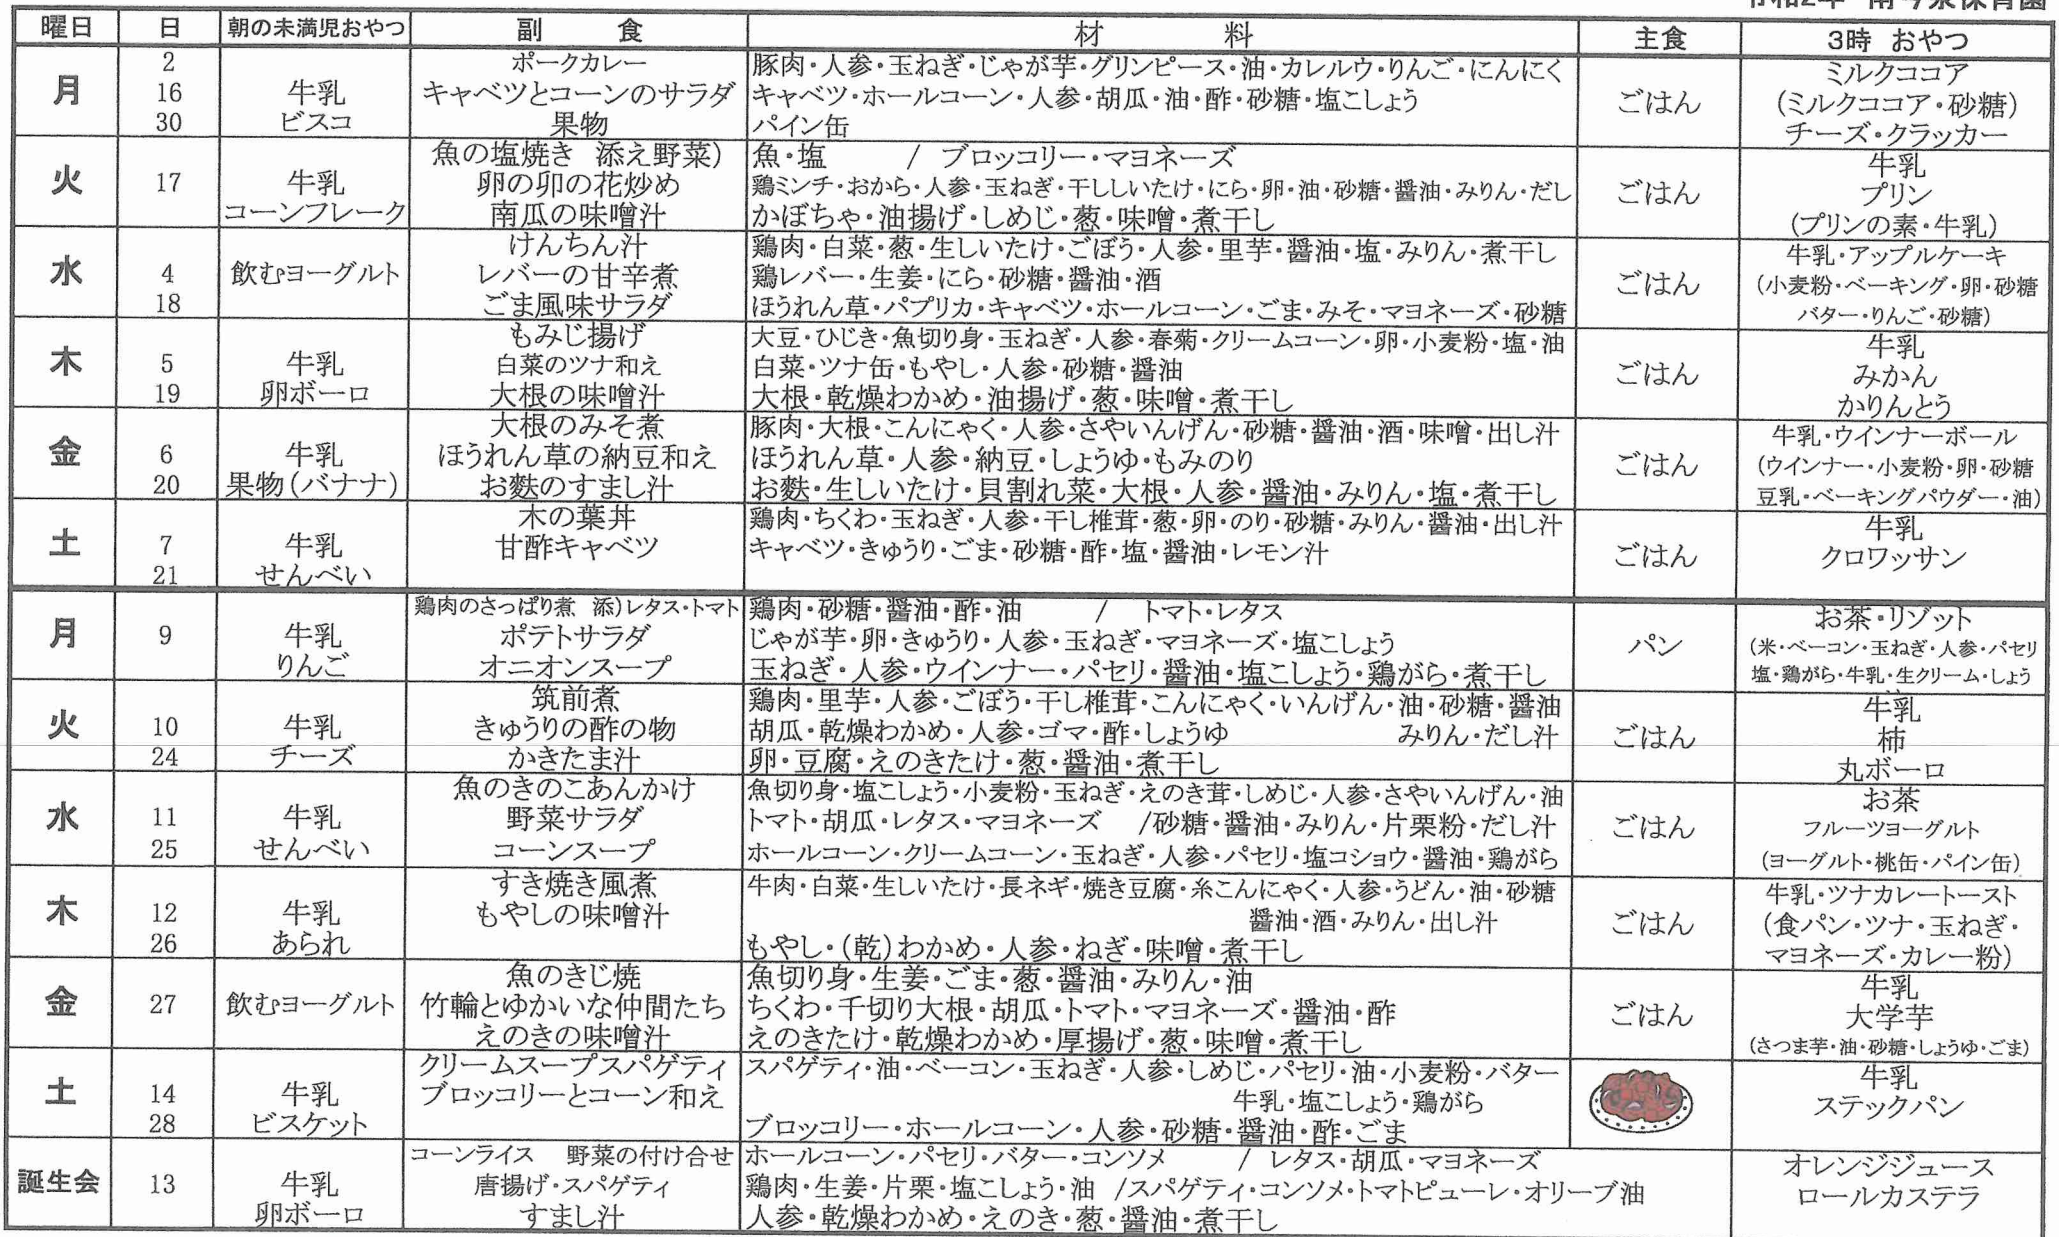 曜日 日 朝の未満児おやつ 副 食 材 料 主食 3時 おやつ
月
2
16
30
牛乳
ビスコ
ポークカレー
キャベツとコーンのサラダ
果物
豚肉・人参・玉ねぎ・じゃが芋・グリンピース・油・カレルウ・りんご・にんにく
キャベツ・ホールコーン・人参・胡瓜・油・酢・砂糖・塩こしょう
パイン缶
ごはん
ミルクココア
(ミルクココア・砂糖)
チーズ・クラッカー
火
17
牛乳
コーンフレーク
魚の塩焼き 添え野菜)
卵の卯の花炒め
南瓜の味噌汁
魚・塩 / ブロッコリー・マヨネーズ
鶏ミンチ・おから・人参・玉ねぎ・干ししいたけ・にら・卵・油・砂糖・醤油・みりん・だし
かぼちゃ・油揚げ・しめじ・葱・味噌・煮干し
ごはん
牛乳
プリン
(プリンの素・牛乳)
水
4
18
飲むヨーグルト
けんちん汁
レバーの甘辛煮
ごま風味サラダ
鶏肉・白菜・葱・生しいたけ・ごぼう・人参・里芋・醤油・塩・みりん・煮干し
鶏レバー・生姜・にら・砂糖・醤油・酒
ほうれん草・パプリカ・キャベツ・ホールコーン・ごま・みそ・マヨネーズ・砂糖
ごはん
牛乳・アップルケーキ
(小麦粉・ベーキング・卵・砂糖
バター・りんご・砂糖)
木
5
19
牛乳
卵ボーロ
もみじ揚げ
白菜のツナ和え
大根の味噌汁
大豆・ひじき・魚切り身・玉ねぎ・人参・春菊・クリームコーン・卵・小麦粉・塩・油
白菜・ツナ缶・もやし・人参・砂糖・醤油
大根・乾燥わかめ・油揚げ・葱・味噌・煮干し
ごはん
牛乳
みかん
かりんとう
金
6
20
牛乳
果物(バナナ)
大根のみそ煮
ほうれん草の納豆和え
お麩のすまし汁
豚肉・大根・こんにゃく・人参・さやいんげん・砂糖・醤油・酒・味噌・出し汁
ほうれん草・人参・納豆・しょうゆ・もみのり
お麩・生しいたけ・貝割れ菜・大根・人参・醤油・みりん・塩・煮干し
ごはん
牛乳・ウインナーボール
(ウインナー・小麦粉・卵・砂糖
豆乳・ベーキングパウダー・油)
土
7
21
牛乳
せんべい
木の葉丼
甘酢キャベツ
鶏肉・ちくわ・玉ねぎ・人参・干し椎茸・葱・卵・のり・砂糖・みりん・醤油・出し汁
キャベツ・きゅうり・ごま・砂糖・酢・塩・醤油・レモン汁
ごはん
牛乳
クロワッサン
月
9
牛乳
りんご
鶏肉のさっぱり煮 添)レタス・トマト
ポテトサラダ
オニオンスープ
鶏肉・砂糖・醤油・酢・油 / トマト・レタス
じゃが芋・卵・きゅうり・人参・玉ねぎ・マヨネーズ・塩こしょう
玉ねぎ・人参・ウインナー・パセリ・醤油・塩こしょう・鶏がら・煮干し
パン
お茶・リゾット
(米・ベーコン・玉ねぎ・人参・パセリ
塩・鶏がら・牛乳・生クリーム・しょう
火
10
24
牛乳
チーズ
筑前煮
きゅうりの酢の物
かきたま汁
鶏肉・里芋・人参・ごぼう・干し椎茸・こんにゃく・いんげん・油・砂糖・醤油
胡瓜・乾燥わかめ・人参・ゴマ・酢・しょうゆ みりん・だし汁
卵・豆腐・えのきたけ・葱・醤油・煮干し
ごはん
牛乳
柿
丸ボーロ
水
11
25
牛乳
せんべい
魚のきのこあんかけ
野菜サラダ
コーンスープ
魚切り身・塩こしょう・小麦粉・玉ねぎ・えのき茸・しめじ・人参・さやいんげん・油
トマト・胡瓜・レタス・マヨネーズ /砂糖・醤油・みりん・片栗粉・だし汁
ホールコーン・クリームコーン・玉ねぎ・人参・パセリ・塩コショウ・醤油・鶏がら
ごはん
お茶
フルーツヨーグルト
(ヨーグルト・桃缶・パイン缶)
木
12
26
牛乳
あられ
すき焼き風煮
もやしの味噌汁
牛肉・白菜・生しいたけ・長ネギ・焼き豆腐・糸こんにゃく・人参・うどん・油・砂糖
醤油・酒・みりん・出し汁
もやし・(乾)わかめ・人参・ねぎ・味噌・煮干し
ごはん
牛乳・ツナカレートースト
(食パン・ツナ・玉ねぎ・
マヨネーズ・カレー粉)
金
27
飲むヨーグルト
魚のきじ焼
竹輪とゆかいな仲間たち
えのきの味噌汁
魚切り身・生姜・ごま・葱・醤油・みりん・油
ちくわ・千切り大根・胡瓜・トマト・マヨネーズ・醤油・酢
えのきたけ・乾燥わかめ・厚揚げ・葱・味噌・煮干し
ごはん
牛乳
大学芋
(さつま芋・油・砂糖・しょうゆ・ごま)
土
14
28
牛乳
ビスケット
クリームスープスパゲティ
ブロッコリーとコーン和え
スパゲティ・油・ベーコン・玉ねぎ・人参・しめじ・パセリ・油・小麦粉・バター
牛乳・塩こしょう・鶏がら
ブロッコリー・ホールコーン・人参・砂糖・醤油・酢・ごま
牛乳
ステックパン
誕生会
13
牛乳
卵ボーロ
コーンライス 野菜の付け合せ
唐揚げ・スパゲティ
すまし汁
ホールコーン・パセリ・バター・コンソメ / レタス・胡瓜・マヨネーズ
鶏肉・生姜・片栗・塩こしょう・油 /スパゲティ・コンソメ・トマトピューレ・オリーブ油
人参・乾燥わかめ・えのき・葱・醤油・煮干し
オレンジジュース
ロールカステラ